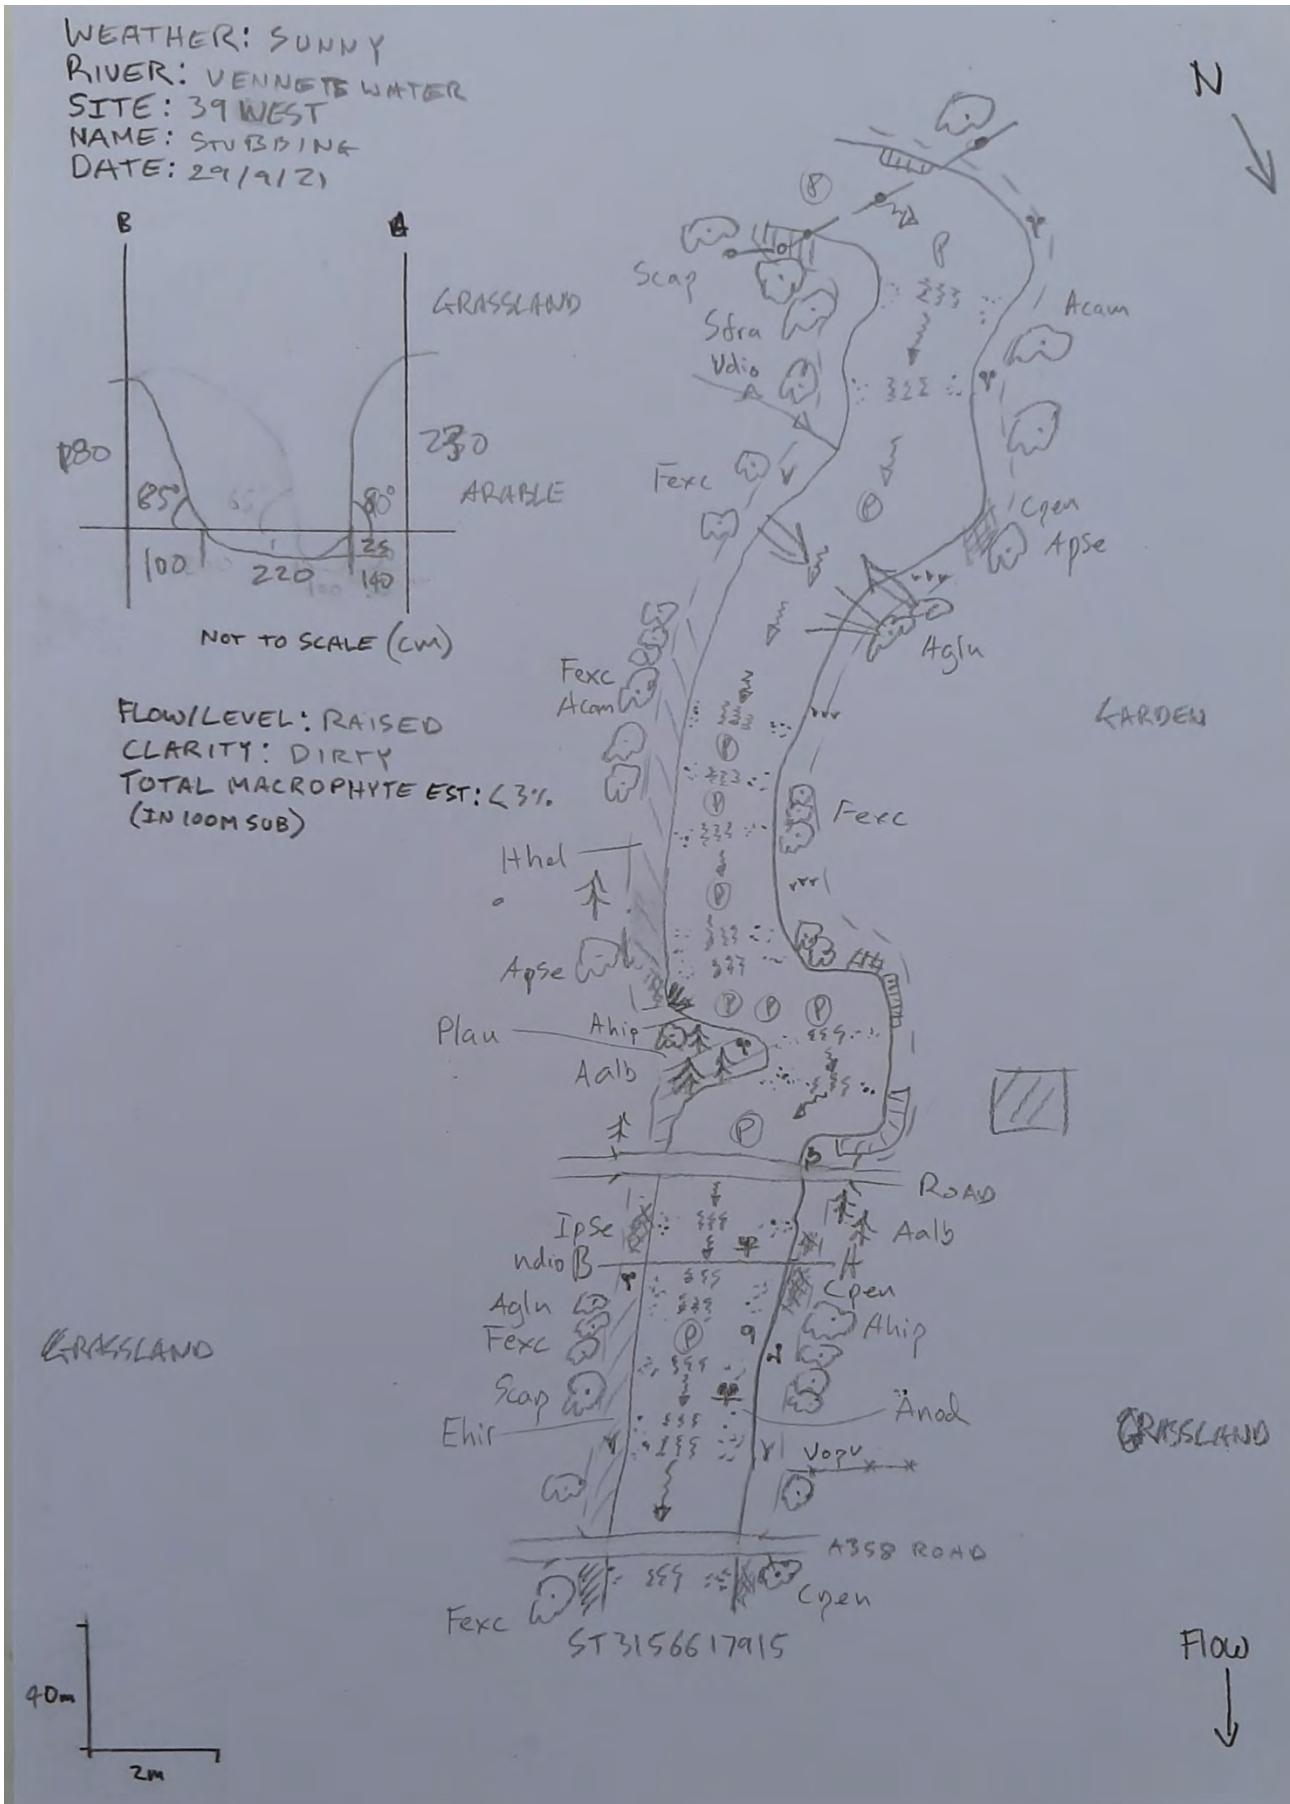 WEATHER: SUNNY
RIVER: VENNETS WATER
SITE: 39 WEST
NAME: STUBBING
DATE: 29/9/21
N
B
A
GRASSLAND
180
230
85°
65
80°
ARABLE
25
100
220
140
NOT TO SCALE (CM)
FLOW/LEVEL: RAISED
CLARITY: DIRTY
TOTAL MACROPHYTE EST: <3%
(IN 100M SUB)
P
P
Scap
Sfra
Udio
Acam
Fexc
P
Cpen
Apse
Aglu
Fexc
Acam
GARDEN
P
P
Fexc
Hhel
P
Apse
P P P
Ahip
Plau
Aalb
P
ROAD
Ipse
Aalb
Udio B
A
Cpen
Aglu
Fexc
P
Ahip
GRASSLAND
Scap
Anod
Ehir
Vopu
GRASSLAND
A358 ROAD
Fexc
Cpen
ST3156617915
40m
2m
Flow